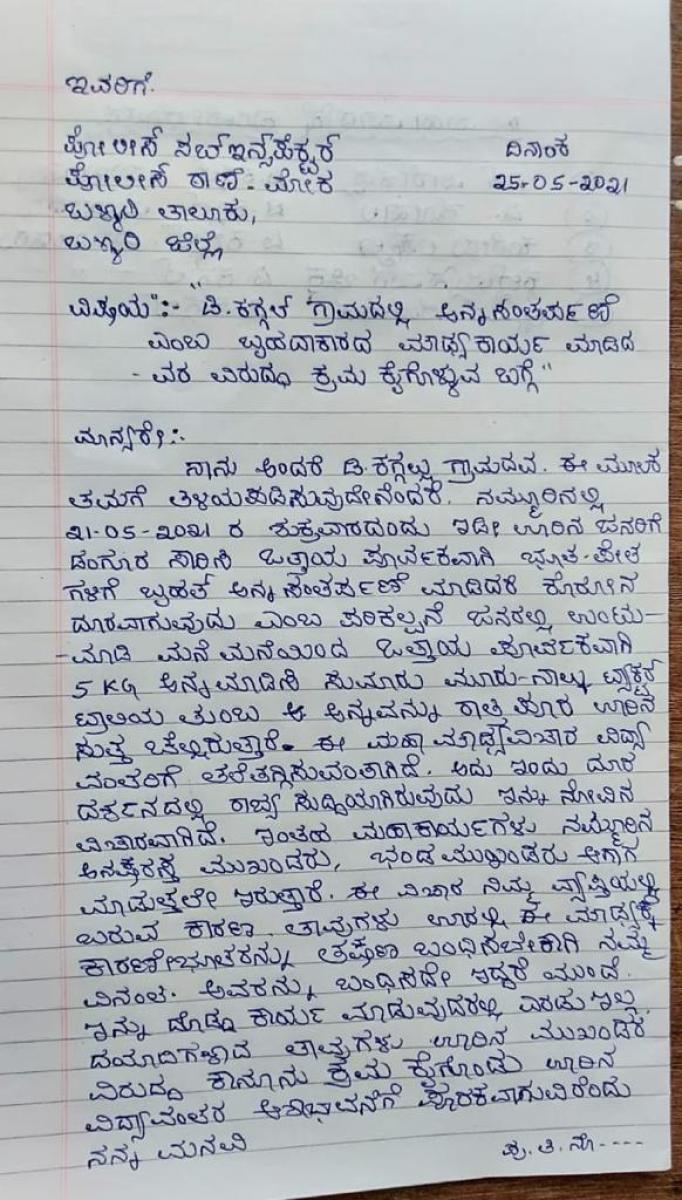 ಇವರಿಗೆ.
ಪೋಲೀಸ್ ಸಬ್ ಇನ್ಸ್‌ಪೆಕ್ಟರ್ ದಿನಾಂಕ
ಪೋಲೀಸ್ ಠಾಣೆ. ಮೋಕ 25-05-2021
ಬಳ್ಳಾರಿ ತಾಲೂಕು,
ಬಳ್ಳಾರಿ ಜಿಲ್ಲೆ
ವಿಷಯ :- "ಡಿ.ಕಗ್ಗಲ್ ಗ್ರಾಮದಲ್ಲಿ ಅನ್ನಸಂತರ್ಪಣೆ
ಎಂಬ ಬೃಹದಾಕಾರದ ಮೌಢ್ಯಕಾರ್ಯ ಮಾಡಿದ
-ವರ ವಿರುದ್ಧ ಕ್ರಮ ಕೈಗೊಳ್ಳುವ ಬಗ್ಗೆ"
ಮಾನ್ಯರೇ:-
ನಾನು ಅಂದರೆ ಡಿ.ಕಗ್ಗಲ್ಲು ಗ್ರಾಮದವ. ಈ ಮೂಲಕ
ತಮಗೆ ತಿಳಿಯಪಡಿಸುವುದೇನೆಂದರೆ. ನಮ್ಮೂರಿನಲ್ಲಿ
21-05-2021 ರ ಶುಕ್ರವಾರದಂದು ಇಡೀ ಊರಿನ ಜನರಿಗೆ
ಡಂಗೂರ ಸಾರಿಸಿ ಒತ್ತಾಯ ಪೂರ್ವಕವಾಗಿ ಭೂತ-ಪ್ರೇತ
ಗಳಿಗೆ ಬೃಹತ್ ಅನ್ನಸಂತರ್ಪಣೆ ಮಾಡಿದರೆ ಕೊರೋನ
ದೂರವಾಗುವುದು ಎಂಬ ಪರಿಕಲ್ಪನೆ ಜನರಲ್ಲಿ ಉಂಟು-
-ಮಾಡಿ ಮನೆ ಮನೆಯಿಂದ ಒತ್ತಾಯ ಪೂರ್ವಕವಾಗಿ
5 KG ಅನ್ನಮಾಡಿಸಿ ಸುಮಾರು ಮೂರು-ನಾಲ್ಕು ಟ್ರಾಕ್ಟರ್
ಟ್ರಾಲಿಯ ತುಂಬ ಆ ಅನ್ನವನ್ನು ರಾತ್ರಿ ಪೂರ ಊರಿನ
ಸುತ್ತ ಚೆಲ್ಲಿರುತ್ತಾರೆ. ಈ ಮಹಾ ಮೌಢ್ಯವಿಚಾರ ವಿದ್ಯಾ
ವಂತರಿಗೆ ತಲೆತಗ್ಗಿಸುವಂತಾಗಿದೆ. ಅದು ಇಂದು ದೂರ
ದರ್ಶನದಲ್ಲಿ ರಾಜ್ಯ ಸುದ್ದಿಯಾಗಿರುವುದು ಇನ್ನು ನೋವಿನ
ವಿಚಾರವಾಗಿದೆ. ಇಂತಹ ಮಹಾಕಾರ್ಯಗಳು ನಮ್ಮೂರಿನ
ಅನಕ್ಷರಸ್ಥ ಮುಖಂಡರು, ಭಂಡ ಮುಖಂಡರು ಆಗಾಗ
ಮಾಡುತ್ತಲೇ ಇರುತ್ತಾರೆ. ಈ ವಿಚಾರ ನಿಮ್ಮ ವ್ಯಾಪ್ತಿಯಲ್ಲಿ
ಬರುವ ಕಾರಣ ತಾವುಗಳು ಊರಲ್ಲಿ ಈ ಮೌಢ್ಯಕ್ಕೆ
ಕಾರಣೀಭೂತರನ್ನು ತಕ್ಷಣ ಬಂಧಿಸಬೇಕಾಗಿ ನಮ್ಮ
ವಿನಂತಿ. ಅವರನ್ನು ಬಂಧಿಸದೇ ಇದ್ದರೆ ಮುಂದೆ
ಇನ್ನು ದೊಡ್ಡ ಕಾರ್ಯ ಮಾಡುವುದರಲ್ಲಿ ಎರಡು ಇಲ್ಲ.
ದಯಾದಿಗಳಾದ ತಾವುಗಳು ಊರಿನ ಮುಖಂಡರ
ವಿರುದ್ಧ ಕಾನೂನು ಕ್ರಮ ಕೈಗೊಂಡು ಊರಿನ
ವಿದ್ಯಾವಂತರ ಆಶಾಭಾವನೆಗೆ ಪೂರಕವಾಗುವಿರೆಂದು
ನನ್ನ ಮನವಿ ಪು.ತಿ.ನೋ----